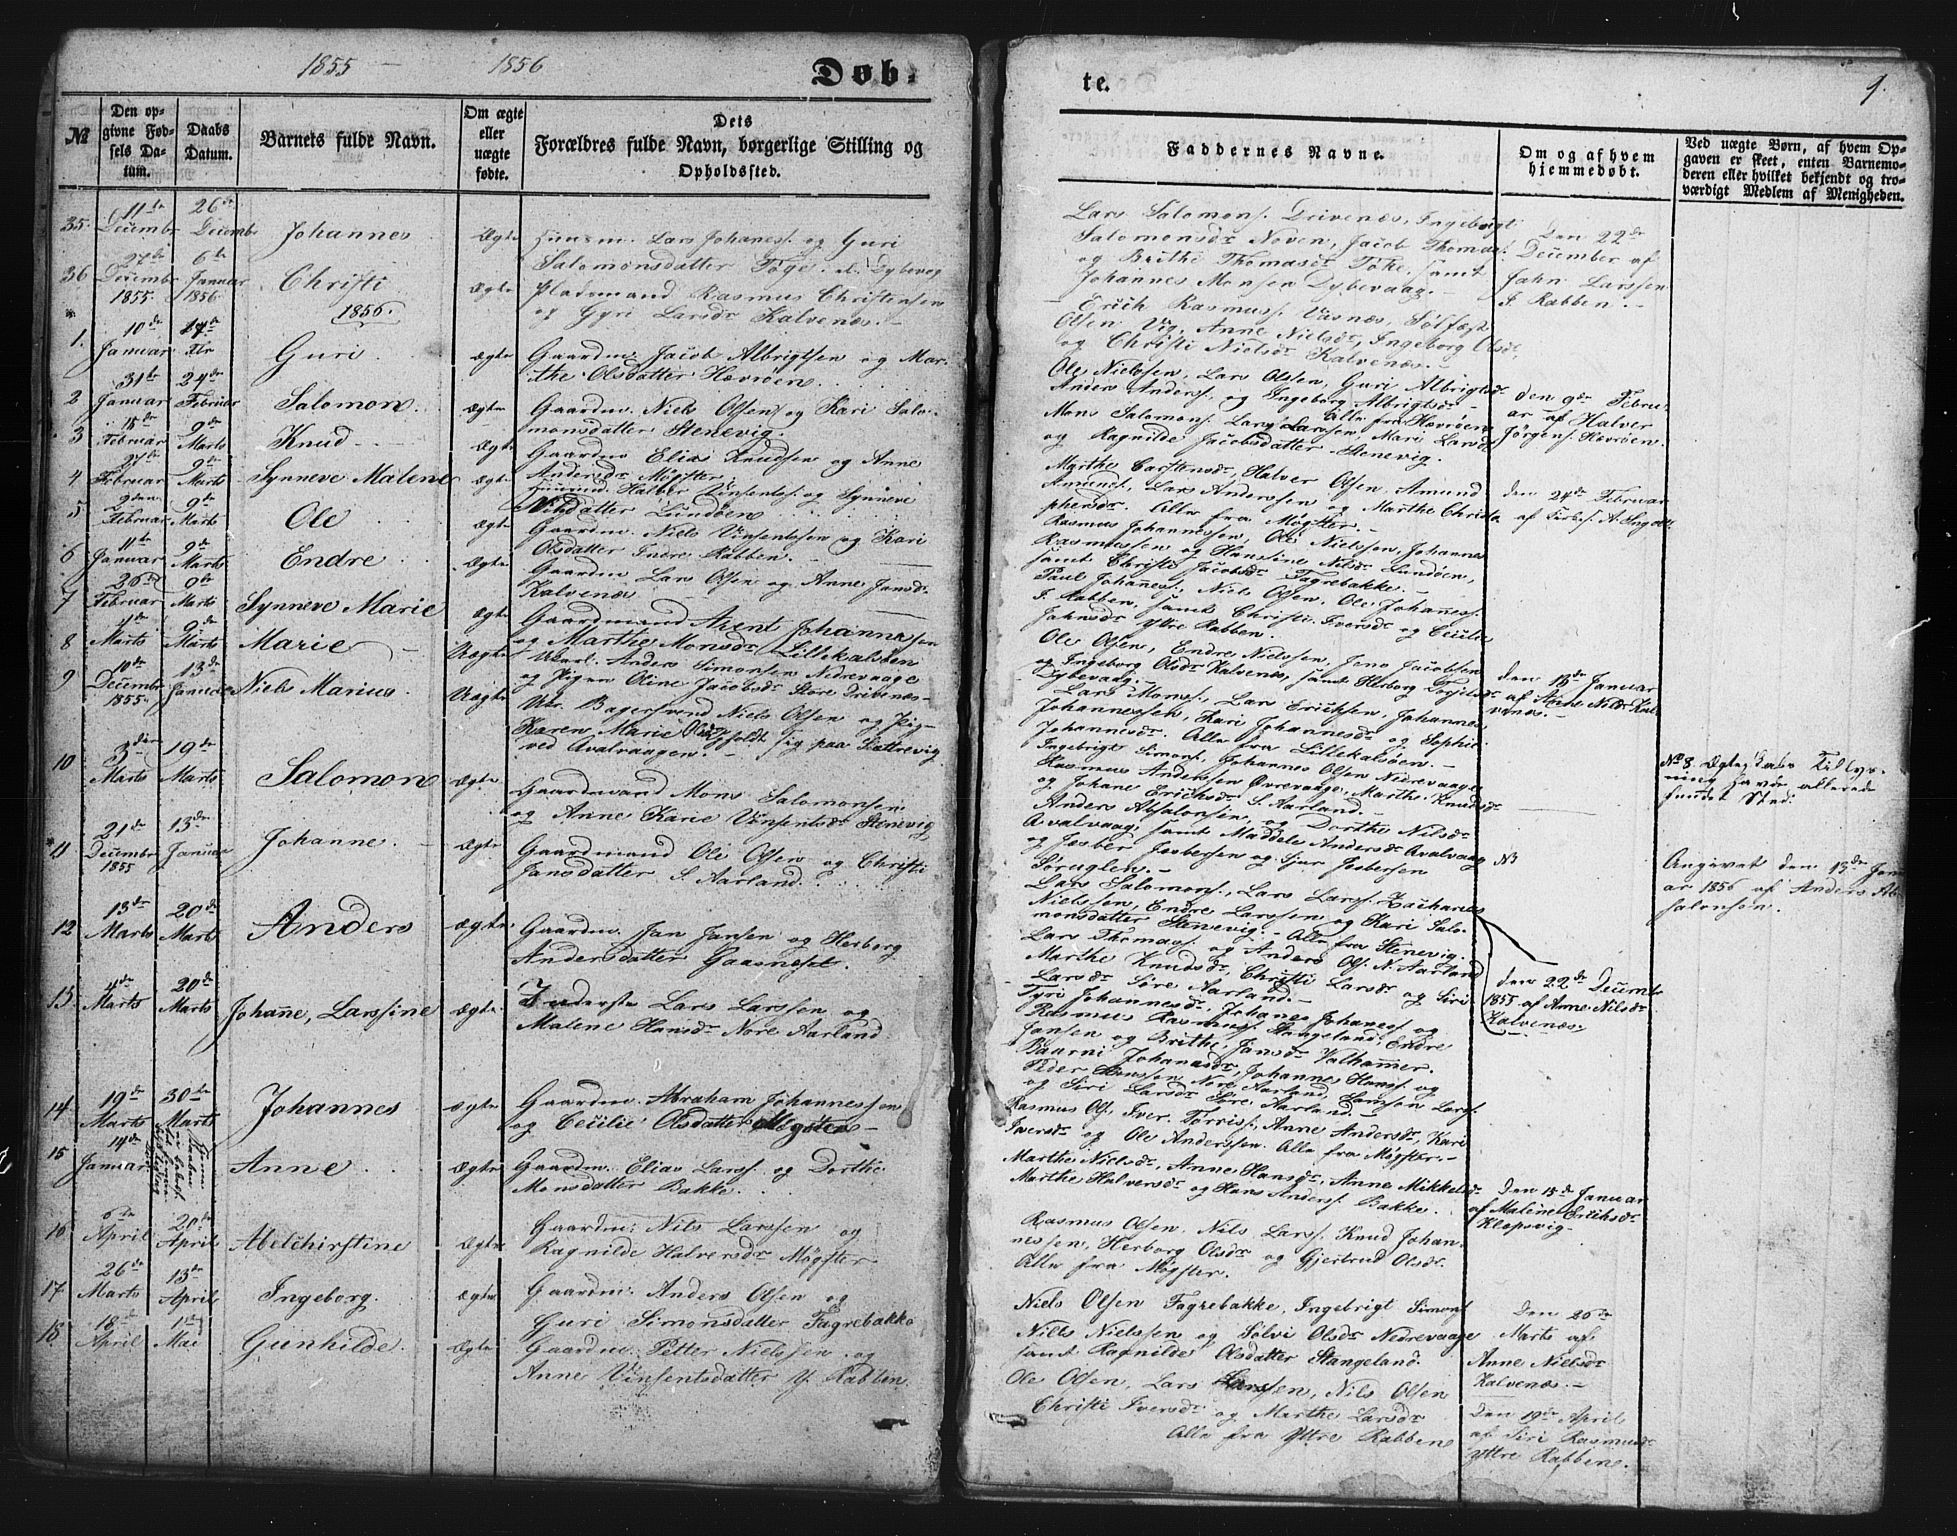 1855 – 1856
Døb-
№
Den op-
givne Fød-
sels Da-
tum.
Daabs
Datum.
Barnets fulde Navn.
Om ægte
eller
uægte
fødte.
Dets
Forældres fulde Navn, borgerlige Stilling og
Opholdssted.
35. 11te Decembr 26de Decembr Johannes Ægte Huusm. Lars Johaness. og Guri
Salomonsdatter Foge. Dybevog
36 27de Decembr 1855. 6te Januar 1856. Christi ægte Pladsmand Rasmus Christensen
og Gyri Larsdr Kalvenæs.
1856.
1. 10de Januar 17de Guri ægte Gaardm. Jacob Albrigtsen og Mar-
the Olsdatter Hævrøen.
2 31te Januar 24de Februar Salomon. ægte Gaardm. Niels Olsen og Kari Salo-
monsdatter Stenevig.
3 15de Februar 9de Marts Knud ægte Gaardm Elias Knudsen og Anne
Andersdr Møgster.
4 27de Februar 9de Marts Synneve Malene ægte Huusmd. Halver Vinsents. og Synneve
Nilsdatter Lundøen
5 Februar 9de Marts Ole ægte Gaardm. Niels Vinsentsen og Kari
Olsdatter Indre Rabben.
6 11te Januar 9de Marts Endre ægte Gaardm Lars Olsen og Anne Jansd.
Kalvenæs
7 26de Februar 9de Marts Synneve Marie ægte Gaardmand Arent Johannessen
og Marthe Monsdr Lillekalsøen
8 4de Marts 9de Marts Marie Uægte Ukarl. Anders Simonsen Nedrevaage
og Pigen Oline Jacobsdr Store Drivenes
9 10de Decembr 1855. 13de Januar Niels Marius. Uægte Ukr. Bagersvend Niels Olsen og Pig-
Karen Marie Opholdt sig paa Sættrevig
ved Avalvaagen.
10 3die Marts 19de Marts Salomon ægte Gaardmand Mons Salomonsen
og Anne Karie Vinsentsdr Stenevig
11 21de Decembr 1855 13de Januar Johanne. ægte Gaardmand Ole Olsen og Christi
Jansdatter S. Aarland.
12 13de Marts 20de Marts Anders ægte Gaardm. Jan Jansen og Herborg
Andersdatter Gaasneset.
13 4de Marts 20de Marts Johañe, Larssine ægte Inderste Lars Larssen og
Malene Hansdr Nore Aarland
14 19de Marts 30te Marts Johannes ægte Gaardm. Abraham Johannessen
og Cecilie Olsdatter Møgster
15 14de Januar Anne ægte Gaardm. Elias Larss. og Dorthe
Monsdatter Bakke.
16 6te April 20de April Abelchirstine ægte Gaardm. Nils Larssen og
Ragnilde Halversdr Møgster
17 26de Marts 13de April Ingeborg. ægte Gaardm. Anders Olsen og
Guri Simonsdatter Fagrebakke
18 18de April 1ste Mai Gunhilde ægte Gaardm. Petter Nielssen og
Anne Vinsentsdatter Y. Rabben.
te.
9.
Faddernes Navne.
Om og af hvem
hjemmedøbt.
Ved uægte Børn, af hvem Op-
gaven er skeet, enten Barnemo-
deren eller hvilket bekjendt og tro-
værdigt Medlem af Menigheden.
Lars Salomons. Drivenæs, Ingebrigt
Salomonsdr Noven, Jacob Thomas.
og Brithe Thomasdr Toke, samt
Johannes Monsen Dybevaag.
Den 22de
December af
John Larssen
I. Rabben.
Erich Rasmuss. Vasnæs, Sølfæst
Olsen Vig, Anne Nielsdr, Ingeborg Olsdr,
og Christi Nielsdr Kalvenæs.
Ole Nielssen, Lars Olsen, Guri Albrigtsdr
Anders Anders. og Ingeborg Albrigtsdr
Alle fra Hævrøen
den 9de Febru-
ar af Halver
Jörgens. Hævrøen.
Mons Salomons. Lars Larssen, Mari Larsdr
og Ragnilde Jacobsdatter Stenevig.
Marthe Carstensdr, Halver Olsen, Amund
Amunds. Lars Anderssen og Marthe Christo-
phersdr. Alle fra Møgster.
den 24de Februar
Rasmus Johannessen, Ole Nielssen, Johannes
Rasmussen og Hansine Nilsdr Lundøen,
samt Christi Jacobsdr Fagrebakke.
Paul Johaness. Niels Olsen, Ole Johaness.
I. Rabben, samt Christi Iversdr og Cecilie
Jahnsdr Yttre Rabben.
Ole Olsen, Endre Nielssen, Jens Jacobsen
og Ingeborg Olsdr Kalvenæs, samt Herborg
Dybevaag.
den 13de Januar
af Anne Nilsdr Kal-
venæs.
Lars Monss. Lars Erichsen, Johannes
Johannessen, Kari Johannesdr og Sophie
Johannesdr. Alle fra Lillekalsøen.
Ingebrigt Simons. Johannes Olsen Nedrevaage
Rasmus Anderssen Øvrevaage, Marthe Knudsdr
og Johane Erichsdr S. Aarland.
No 8. Ægteskabs Tillys-
ning havde allerede
fundet Sted.
Anders Absalonsen, og Dorthe Nilsdr
Avalvaag, samt Maddele Andersdr Avalvaag
og Jesber Jesbersen og Sjur Jesbersen
Søruglen.
Angivet den 13de Janu-
ar 1856 af Anders Ab-
salonsøn.
Lars Salomons. Lars Larss. Zacharias
Nielssen, Endre Larssen og Kari Salo-
monsdatter Stenevig. Alle fra Stenevig.
Lars Thomas. og Anders Ols. N. Aarland
Marthe Knudsdr, Christi Larsdr og Siri
Larsdr Søre Aarland.
den 22de Decembr
1855 af Anne Nilsdr
Kalvenæs.
Gyri Johannesdr, Johanes Johaness. og
Rasmus Rasmuss. Stangeland, Endre
Jansen og Brithe Jansdr Valhammer.
Baarni Johanesdr, Johannes Hanss. og
Peder Hanssen Nore Aarland,
og Siri Larsdr Søre Aarland.
Rasmus Ols. Iver Torriss. Anne Andersdr, Kari
Iversdr og Ole Anderssen. Alle fra Møgster.
Marthe Nielsdr, Anne Hansdr, Anne Mikkelsdr
Marthe Halversdr og Hans Anders. Bakke.
Den 15de Januar
af Malene Erichsdr
Klepsvig.
Rasmus Olsen, Nils Larss. Knud Johan-
nessen, Herborg Olsdr og Gjertrud Olsdr.
Alle fra Møgster.
Niels Olsen Fagrebakke, Ingebrigt Simons.
Niels Nielssen og Sølvi Olsdr Nedrevaage
samt Ragnilde Olsdatter Stangeland.
Den 26de
Marts af
Anne Nielsdr
Kalvenæs.
Ole Olsen, Lars Larssen, Nils Olsen
Christi Iversdr og Marthe Larsdr
Alle fra Yttre Rabben
Den 19de April
af Siri Rasmusdr
Yttre Rabben.